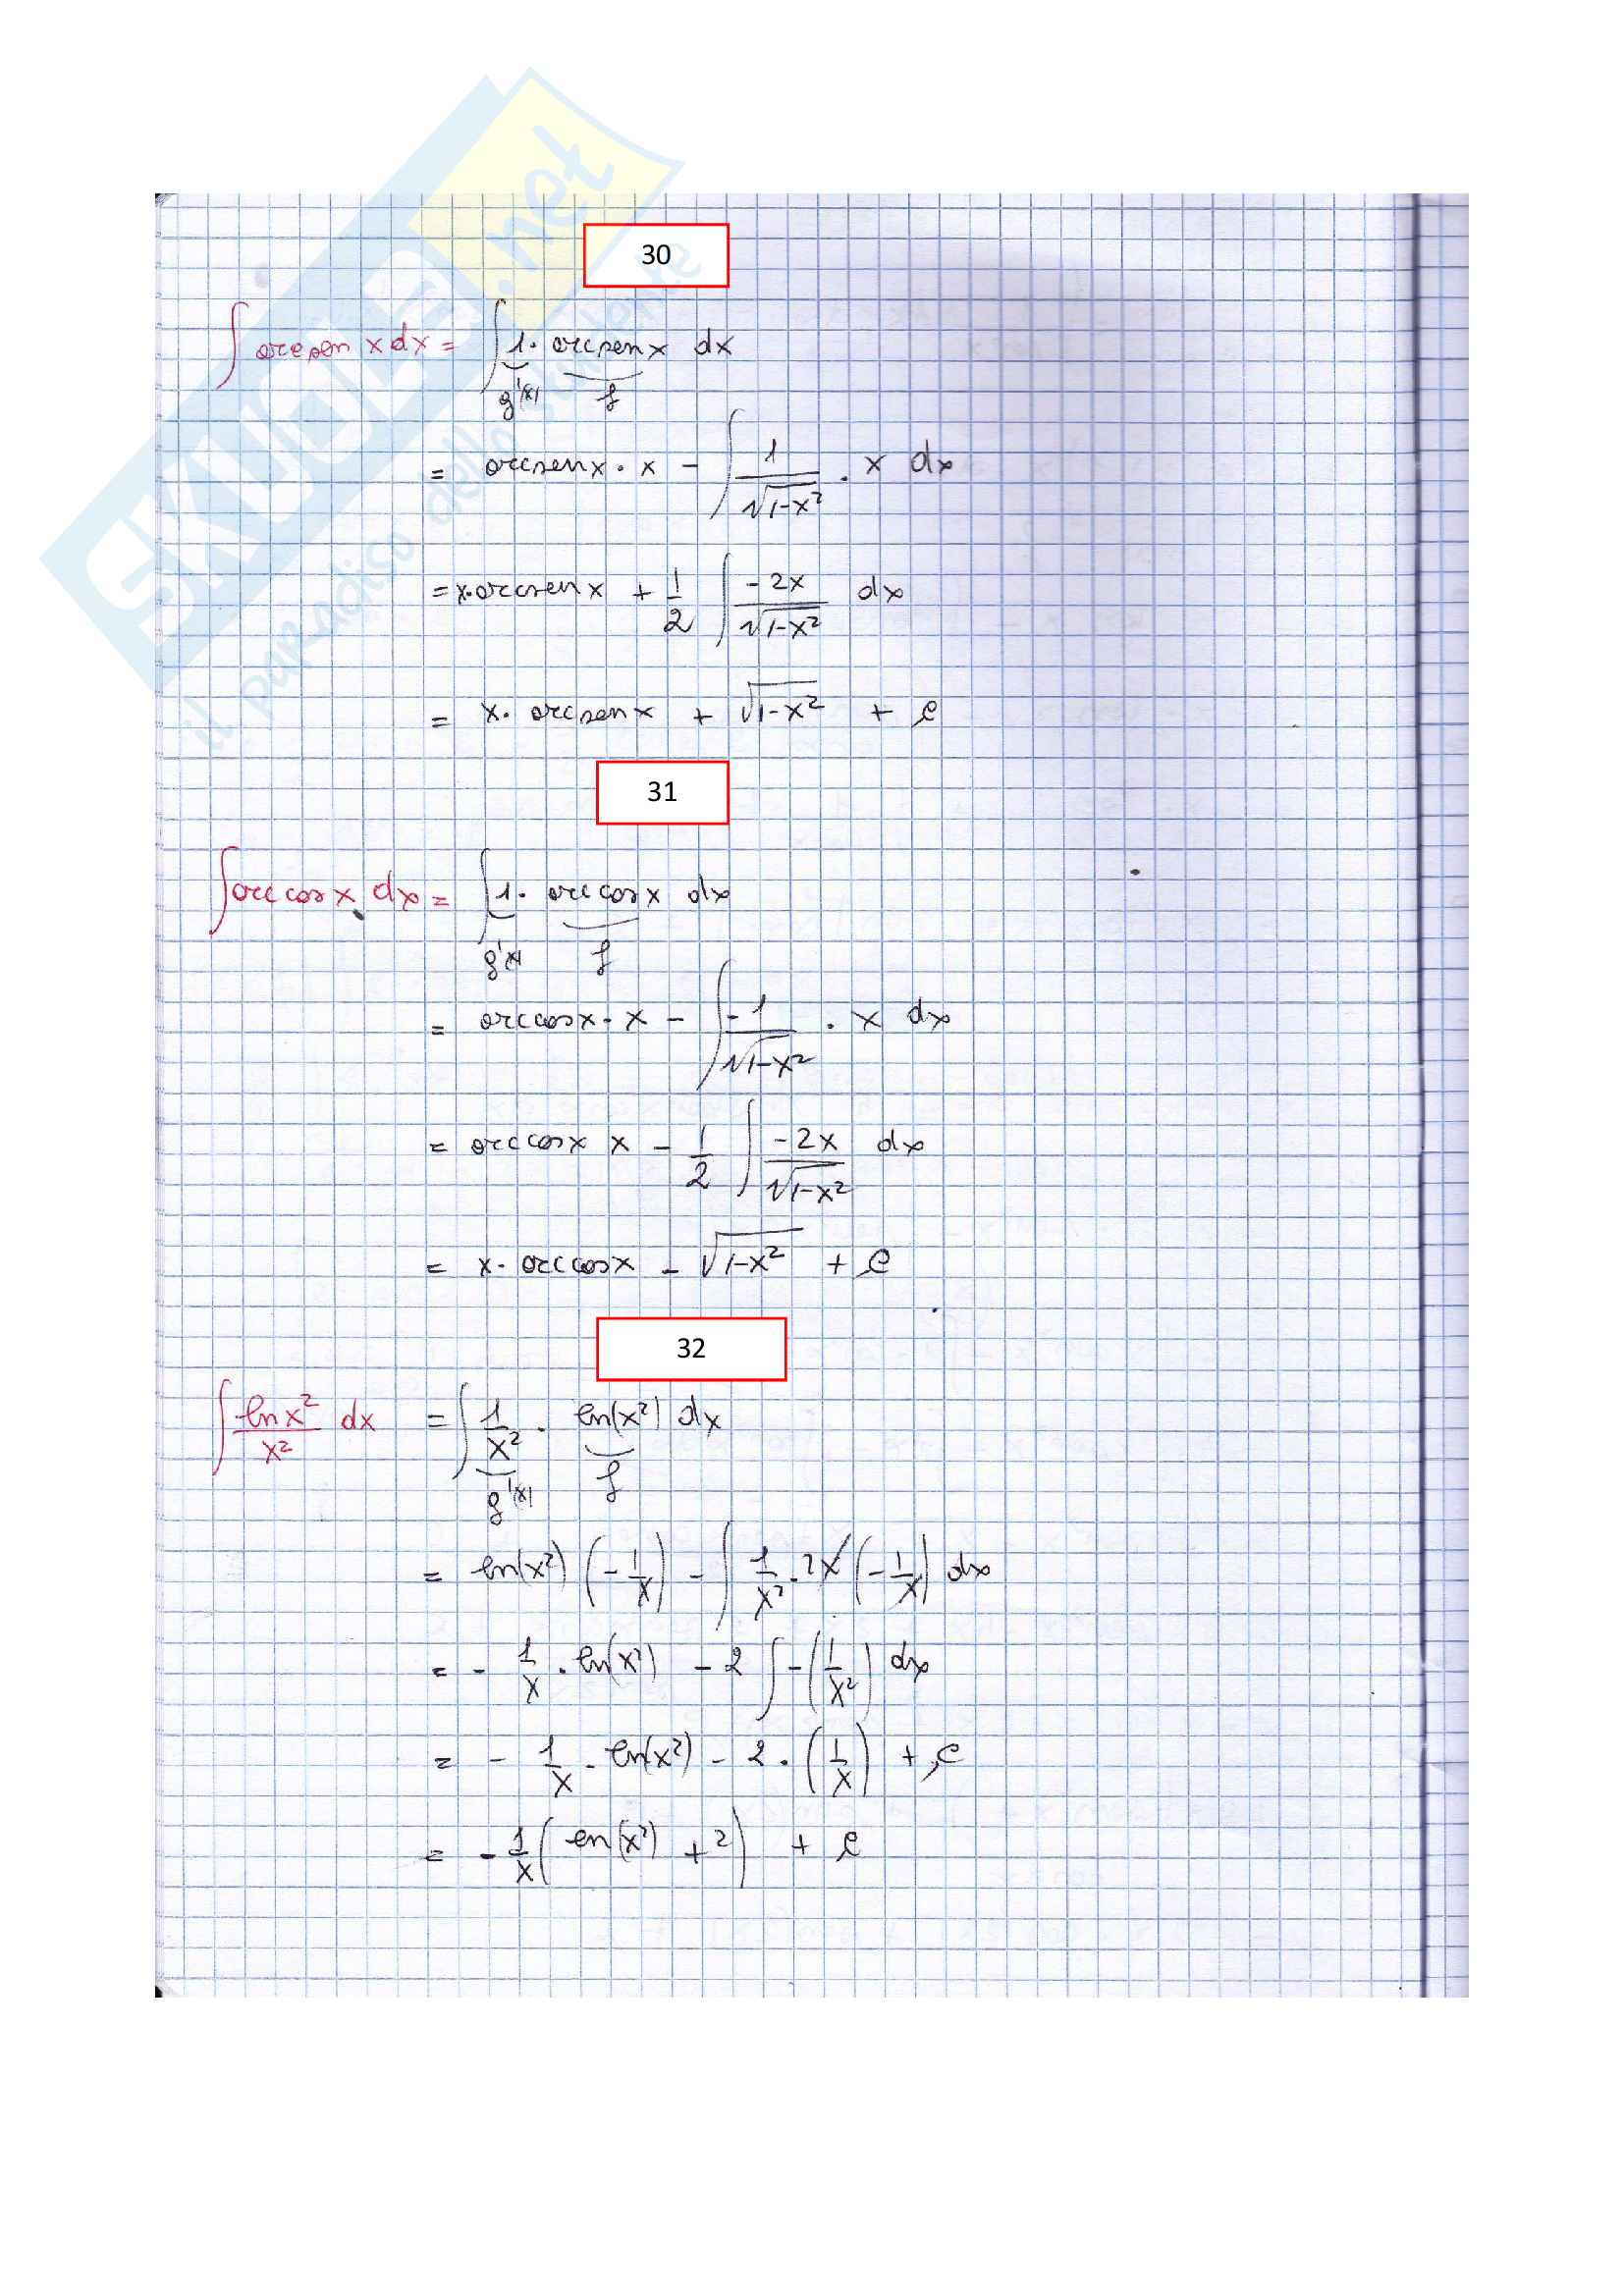 SKUOLA.net
il paradiso dello studente
30
∫ arcsen x dx = ∫ 1 · arcsen x dx
g'(x) f
= arcsen x · x - ∫ 1/√(1-x²) · x dx
= x · arcsen x + 1/2 ∫ -2x/√(1-x²) dx
= x · arcsen x + √(1-x²) + c
31
∫ arccos x dx = ∫ 1 · arccos x dx
g'(x) f
= arccos x · x - ∫ -1/√(1-x²) · x dx
= arccos x x - 1/2 ∫ -2x/√(1-x²) dx
= x · arccos x - √(1-x²) + c
32
∫ ln x²/x² dx = ∫ 1/x² · ln(x²) dx
g'(x) f
= ln(x²) (-1/x) - ∫ 1/x² · 2x (-1/x) dx
= - 1/x · ln(x²) - 2 ∫ -(1/x²) dx
= - 1/x · ln(x²) - 2 · (1/x) + c
= - 1/x (ln(x²) + 2) + c